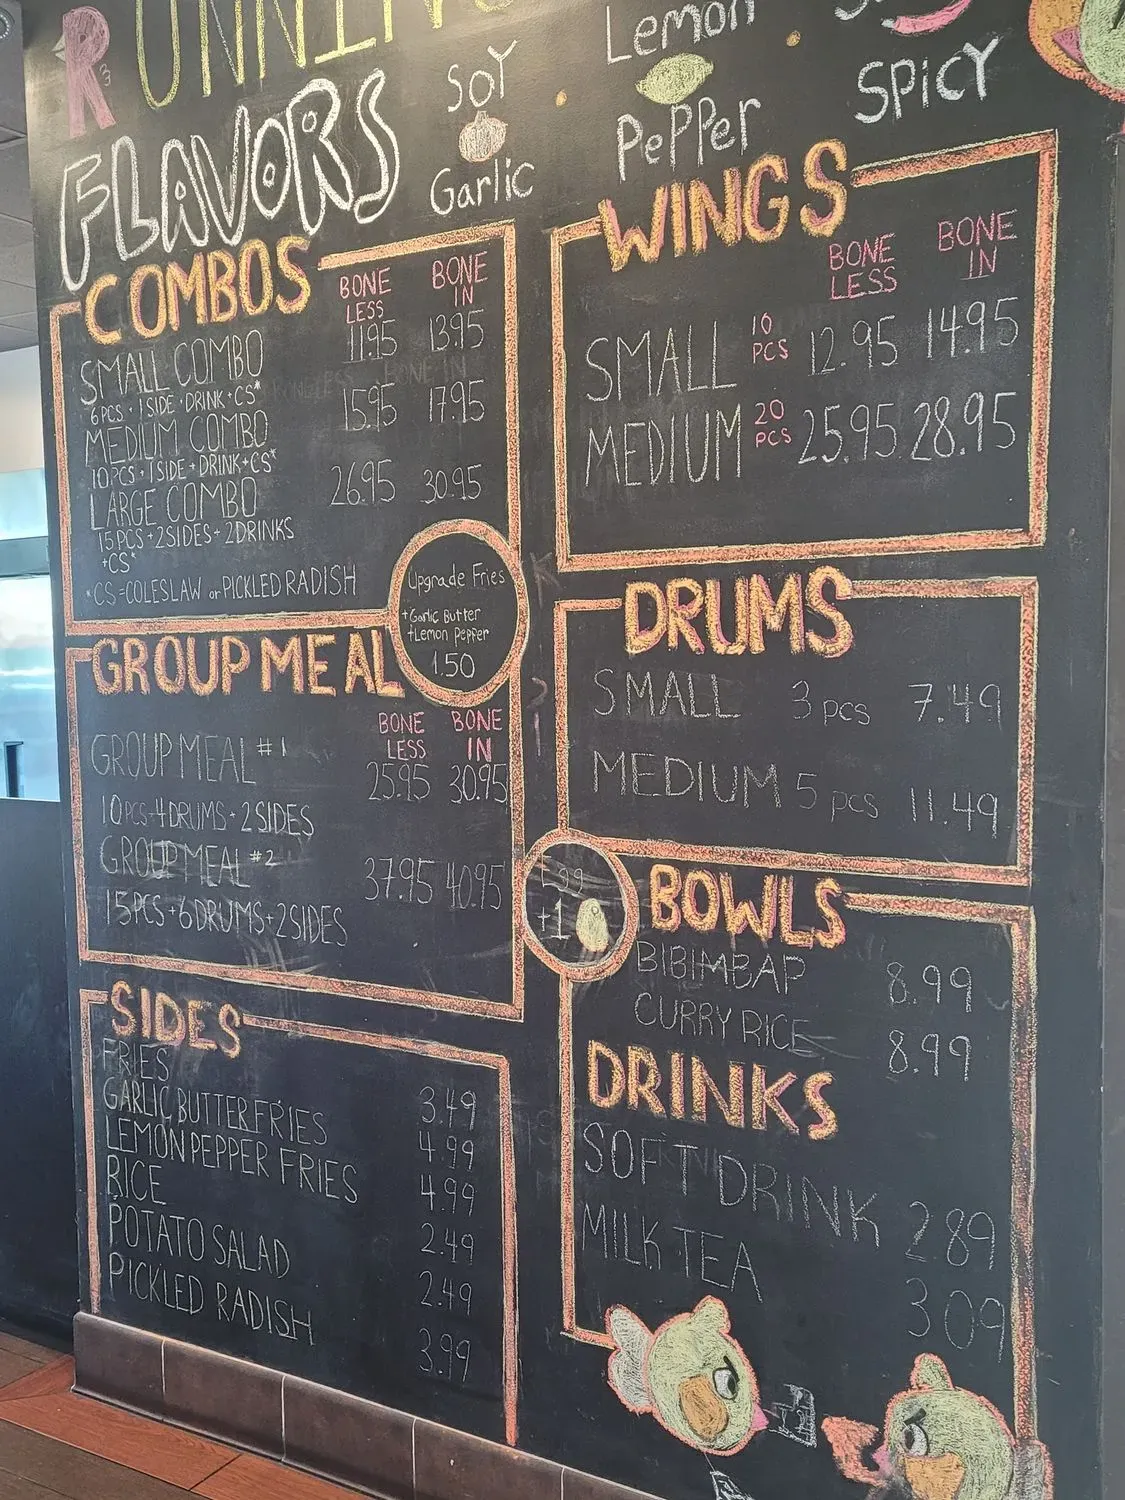 RUNNING
FLAVORS
SOY
Garlic
Lemon
PePPer
SPicY
COMBOS
BONE LESS
BONE IN
SMALL COMBO 11.95 13.95
6PCS + 1SIDE + DRINK + CS*
MEDIUM COMBO 15.95 17.95
10PCS + 1SIDE + DRINK + CS*
LARGE COMBO 26.95 30.95
15PCS + 2SIDES + 2DRINKS
+CS*
*CS=COLESLAW or PICKLED RADISH
Upgrade Fries
+Garlic Butter
+Lemon Pepper
1.50
GROUP MEAL
BONE LESS
BONE IN
GROUP MEAL #1 25.95 30.95
10PCS+4DRUMS+2SIDES
GROUP MEAL #2 37.95 40.95
15PCS+6DRUMS+2SIDES
SIDES
FRIES 3.49
GARLIC BUTTER FRIES 4.99
LEMON PEPPER FRIES 4.99
RICE 2.49
POTATO SALAD 2.49
PICKLED RADISH 3.99
WINGS
BONE LESS
BONE IN
SMALL 10 PCS 12.95 14.95
MEDIUM 20 PCS 25.95 28.95
DRUMS
SMALL 3 pcs 7.49
MEDIUM 5 pcs 11.49
+1
BOWLS
BIBIMBAP 8.99
CURRY RICE 8.99
DRINKS
SOFT DRINK 2.89
MILK TEA 3.09